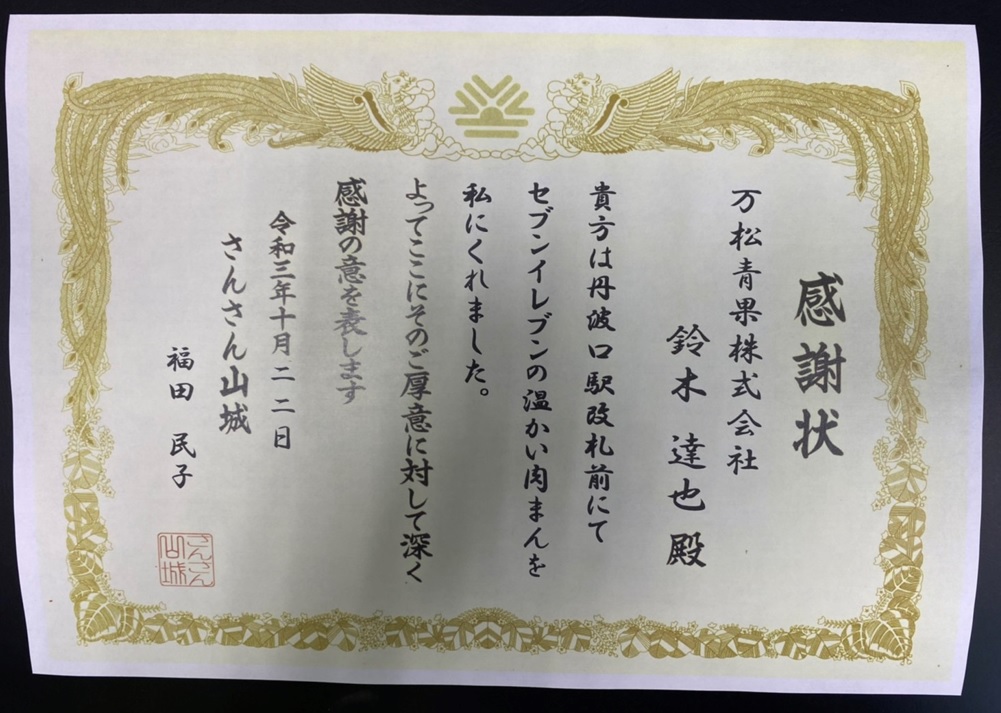 感謝状
万松青果株式会社
鈴木 達也 殿
貴方は丹波口駅改札前にて
セブンイレブンの温かい肉まんを
私にくれました。
よってここにそのご厚意に対して深く
感謝の意を表します
令和三年十月二二日
さんさん山城
福田 民子
さんさん
山城